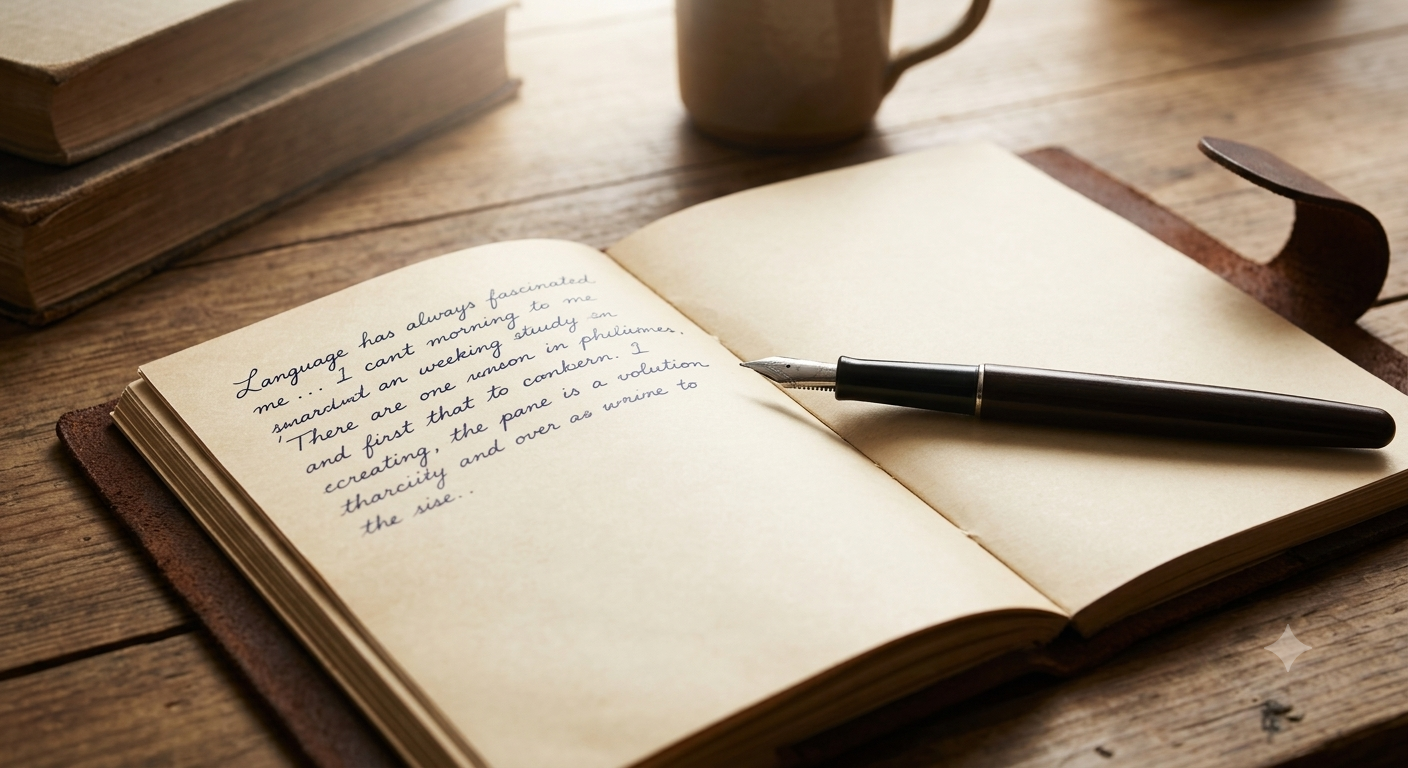 Language has always fascinated
me... I cant morning to me
an weeking study on
'There are one in philiümes.
and first that to conbern. I
ecreating, the pane is a volution
tharciity and over as wrine to
the sise..